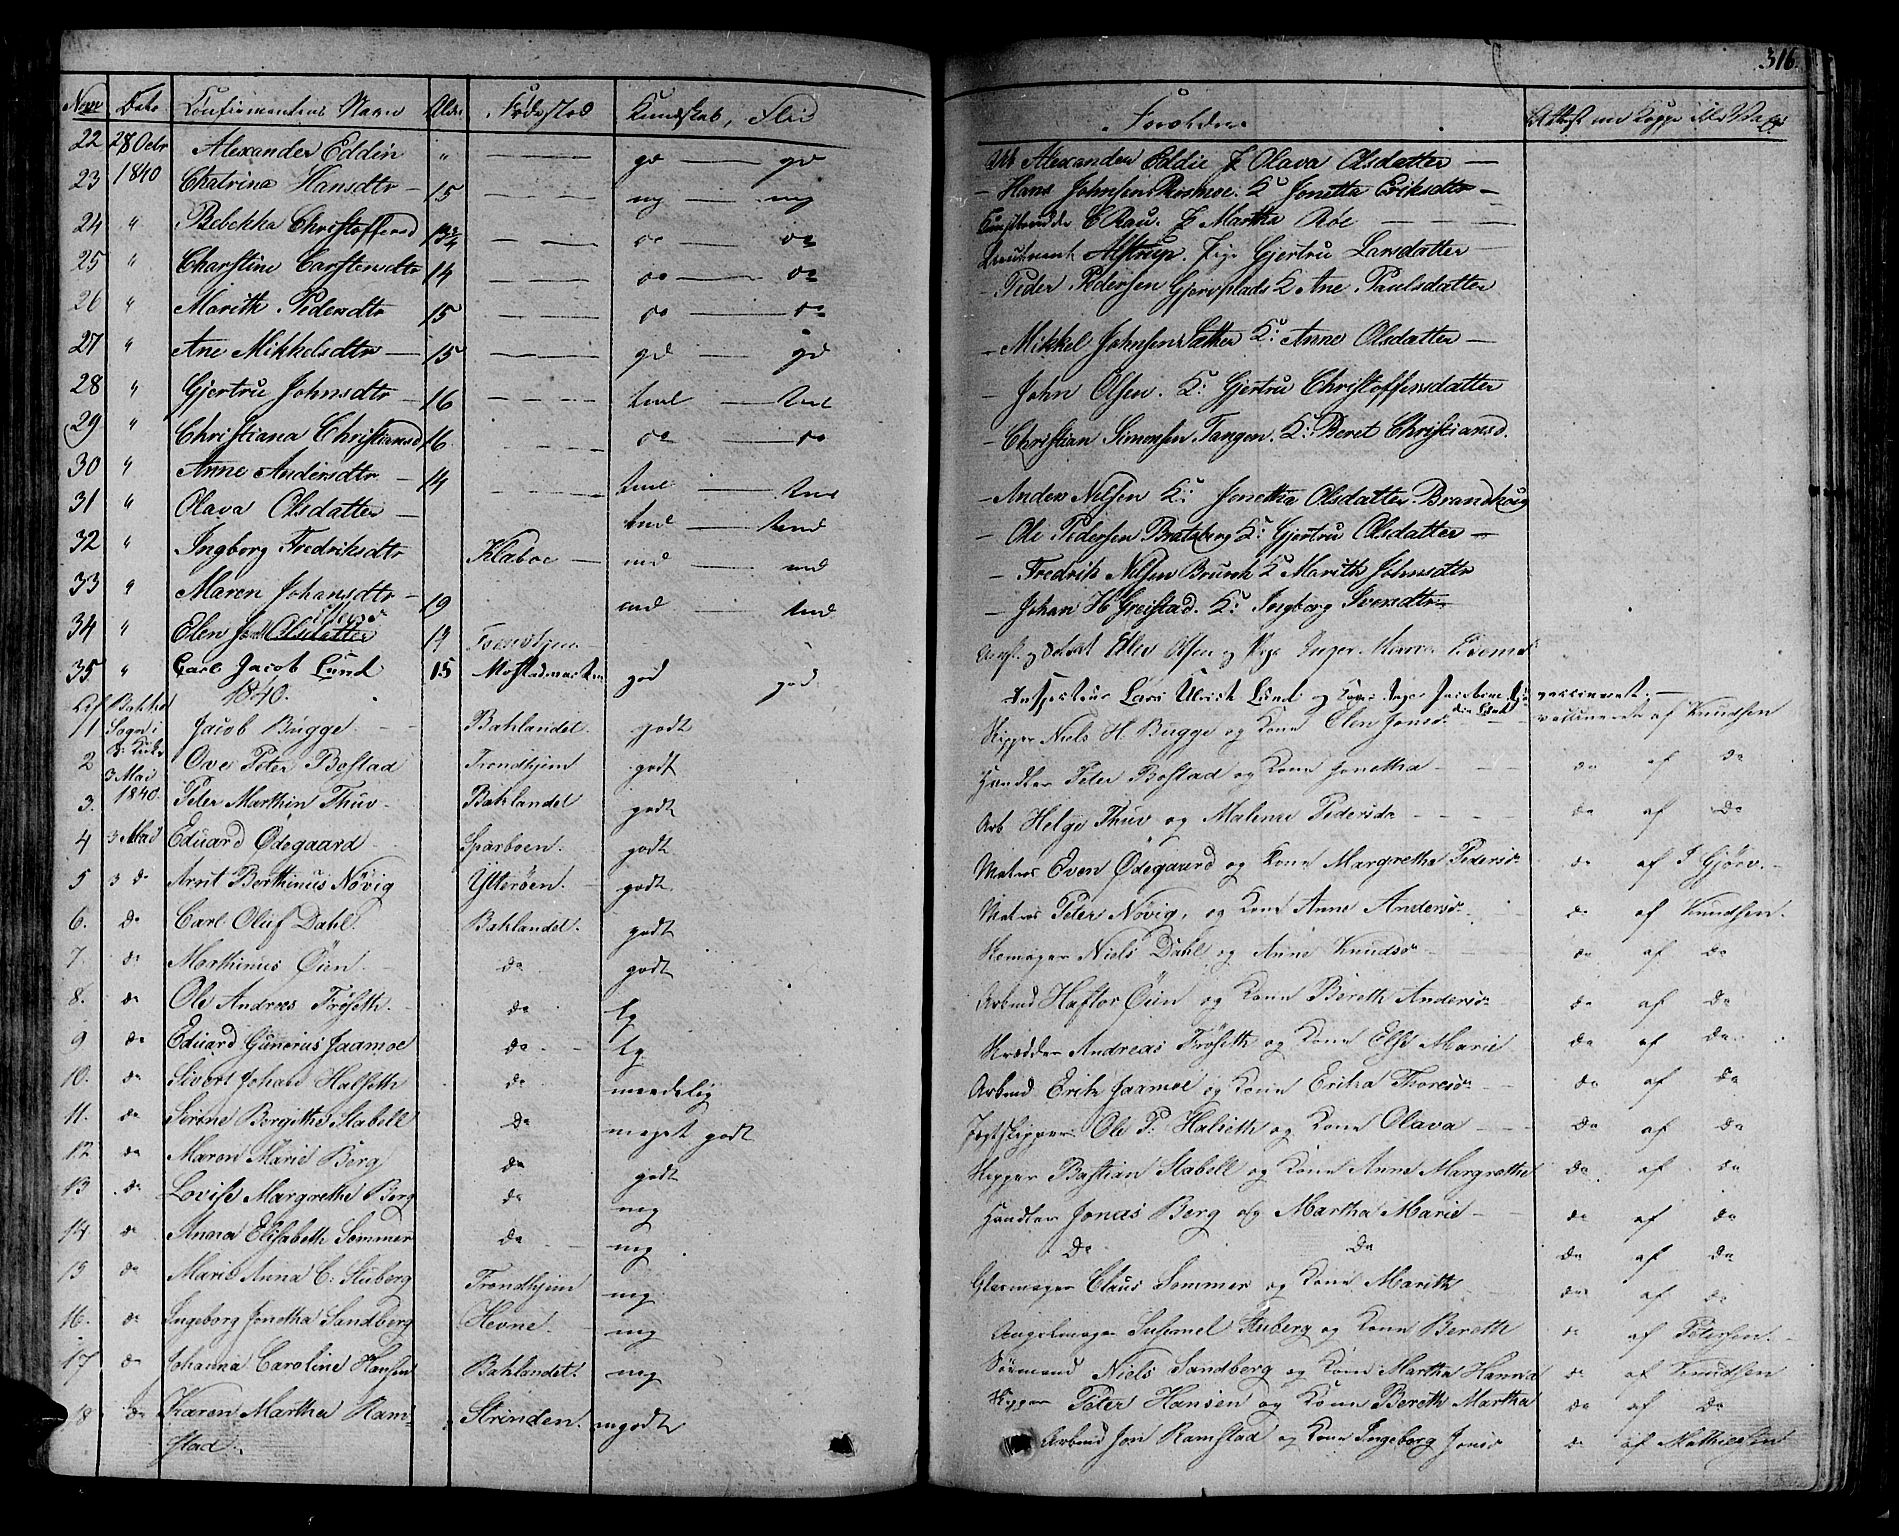 316.
Nom Dato Confirmantens Navn Alder Fødested Kundskab, Flid Forældre Attest om Kopper
22 28 Octr Alexander Eddin " — gd — gd Arb Alexander Eddie F Olava Olsdatter —
23 1840 Chatrina Hansdtr 15 — mg — mg — Hans Johnsen K Jonetta Eriksdtr —
24 " Bebekka Christoffersd 13¾ — do — do C Rau. F Martha Röe —
25 " Charstine Carstensdtr 14 — do — do Lieutnant Alstrup. Pige Gjertru Larsdatter
26 " Marith Pedersdtr 15 — do — do — Peder Pedersen K Ane Paulsdatter
27 " Ane Mikkelsdtr — 15 — gd — gd — Mikkel Johnsen Sæther K: Anne Olsdatter —
28 " Gjertru Johnsdtr 16 — tmd — tmd — John Olsen. K: Gjertru Christoffersdatter
29 " Christiana Christiansd 16 — do — do — Christian Simonsen Tangen. K: Beret Christiansd.
30 " Anne Andersdtr — 14 — tmd — tmd — Anders Nilsen K: Jonetha Olsdatter
31 " Olava Olsdatter — tmd — tmd — Ole Pedersen Bratsberg K: Gjertru Olsdatter —
32 " Ingborg Fredriksdtr Klæboe — md — md — Fredrik Nilsen K Marith Johnsdtr
33 " Maren Johansdtr 19 md — tmd — Johan H Greistad. K: Ingborg Svensdtr
34 " Elen Olsdatter 19 Ellev Olsen og Pige Inger
35 " Carl Jacob Lund 15 god god Lars Ulrich Lund og Kone Inger Jacobine vaccineret. —
1840.
1 Sogn i Jacob Bugge Baklandet godt Skipper Niels H. Bugge og Kone Elen Jonsd: vaccineret af Knudsen
2 Ove Peter Bostad Trondhjem godt Handler Peter Bostad og Kone Jonetha do af do
3. 3 Mai 1840 Peter Marthin Thuv Baklandet godt Arb Helge Thuv og Malene Pedersd: do af do
4 3 Mai Eduard Ödegaard Sparboen. godt Matros Even Ödegaard og Kone Margretha Pedersd: do af J Gjörv.
5 3 do Arnt Berthinus Növig Ytteröen. godt Matros Peter Növig, og Kone Anne Andersd: do af Knudsen.
6. do Carl Oluf Dahl. Baklandet. godt Skomager Niels Dahl og Anne Knudsd: do af do
7. do Marthinus Öien do godt Arbmd Haftor Öien og Kone Bereth Andersd: do af do
8. do Ole Andreas Fröseth. do tg Skrædder Andreas Fröseth og Kone Else Marie do af do
9 do Eduard Gunerius Jaamoe do tg Arbmd Erik Jaamoe og Kone Erika Thoresd: do af do
10. do Sivert Johan Halseth do maadelig Jægtskipper Ole P: Halseth og Kone Olava do af do
11. do Sirene Bergithe Stabell do meget godt Skipper Bastian Stabell og Kone Anne Margrethe do af do
12 do Maren Marie Berg do godt Handler Jonas Berg og Martha Marie do af do
13 do Lovise Margrethe Berg do mg do do do af do
14. do Anna Elisabeth Sommer do mg Glasmager Claus Sommer og Kone Marith do af do
15 do Marie Anna C: Stuberg Trondhjem mg Stuberg og Kone Bereth do af Petersen.
16. do Ingeborg Jonetha Sandberg Hevne mg Sömand Niels Sandberg og Kone Martha Hanna do af Knudsen
17 do Johanna Caroline Hansen Baklandet. mg Skipper Peter Hansen og Kone Bereth Martha do af do
18 do Karen Martha Ram- Strinden. mgodt Arbmd Jon Ramstad og Kone Ingeborg Jonsd: do af Mathiesen
stad.